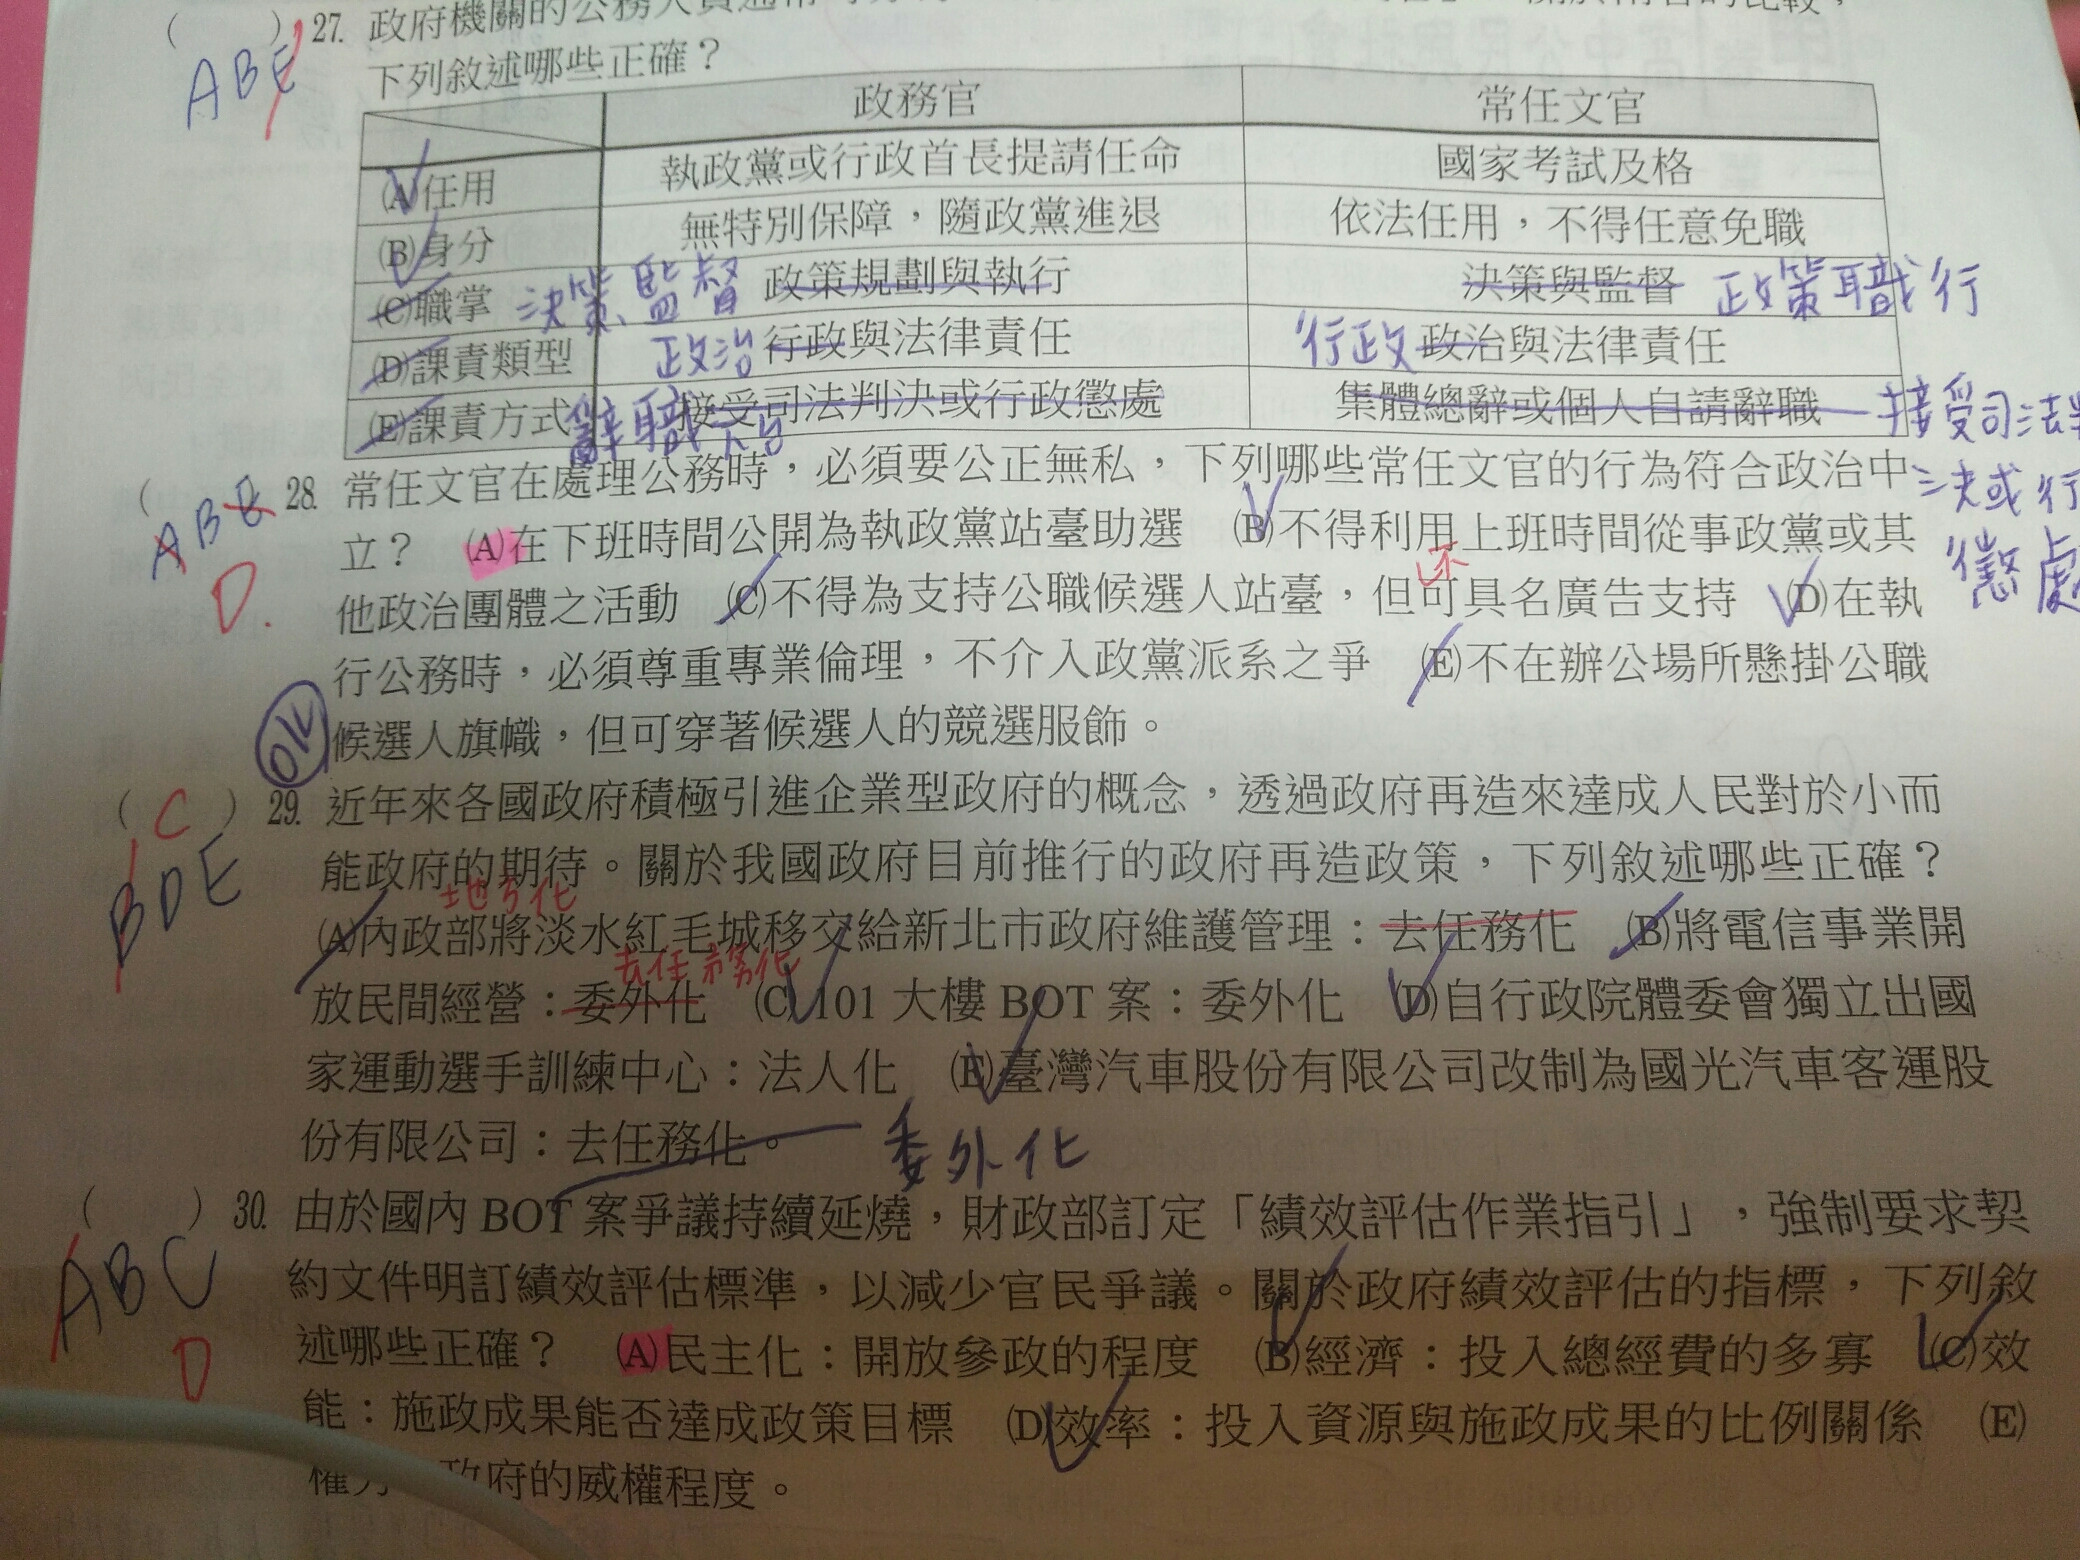 27. 政府機關的公務人員通常可分
下列敘述哪些正確？
ABE
政務官 常任文官
(A)任用 執政黨或行政首長提請任命 國家考試及格
(B)身分 無特別保障，隨政黨進退 依法任用，不得任意免職
(C)職掌 決策、監督 政策規劃與執行 決策與監督 政策職行
(D)課責類型 政治 行政與法律責任 行政 政治與法律責任
(E)課責方式 辭職下台 接受司法判決或行政懲處 集體總辭或個人自請辭職 接受司法判
決或行
懲處
( 28. 常任文官在處理公務時，必須要公正無私，下列哪些常任文官的行為符合政治中
ABE
D.
立？ (A)在下班時間公開為執政黨站臺助選 (B)不得利用上班時間從事政黨或其
不
他政治團體之活動 (C)不得為支持公職候選人站臺，但可具名廣告支持 (D)在執
行公務時，必須尊重專業倫理，不介入政黨派系之爭 (E)不在辦公場所懸掛公職
OK
候選人旗幟，但可穿著候選人的競選服飾。
( C ) 29. 近年來各國政府積極引進企業型政府的概念，透過政府再造來達成人民對於小而
BDE
能政府的期待。關於我國政府目前推行的政府再造政策，下列敘述哪些正確？
地方化
(A)內政部將淡水紅毛城移交給新北市政府維護管理：去任務化 (B)將電信事業開
去任務化
放民間經營：委外化 (C)101 大樓 BOT 案：委外化 (D)自行政院體委會獨立出國
家運動選手訓練中心：法人化 (E)臺灣汽車股份有限公司改制為國光汽車客運股
份有限公司：去任務化。 委外化
( ) 30. 由於國內 BOT 案爭議持續延燒，財政部訂定「績效評估作業指引」，強制要求契
ABC
D
約文件明訂績效評估標準，以減少官民爭議。關於政府績效評估的指標，下列敘
述哪些正確？ (A)民主化：開放參政的程度 (B)經濟：投入總經費的多寡 (C)效
能：施政成果能否達成政策目標 (D)效率：投入資源與施政成果的比例關係 (E)
政府的威權程度。